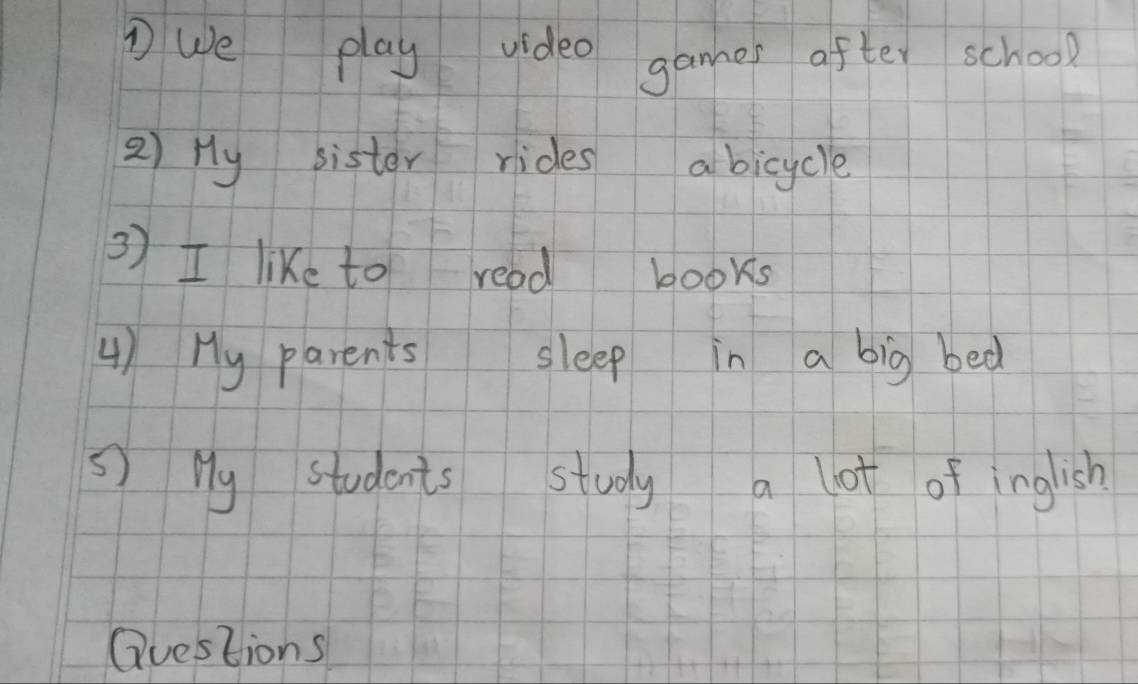 1) We play video games after school
2) My sister rides a bicycle
3) I like to read books
4) My parents sleep in a big bed
5) My students study a lot of inglish.
Questions